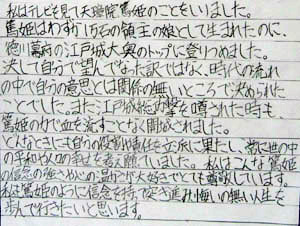 私はテレビを見て天璋院篤姫のことをいりました。
彼女はわずか1万石の領主の娘として生まれたのに、
徳川幕府の江戸城大奥のトップに登りつめました。
決して自分で望んでなった訳ではなく、時代の流れ
の中で自分の意思とは関係の無いところで決められた
ことでした。また江戸城総攻撃を噂された時も、
篤姫の力で血を流すことなく開城されました。
どんなときにも自分の役割や責任を立派に果たし、常に世の中
の平和や人の幸せを考え願っていました。私はこんな篤姫
の信念の強さや心の温かさが大好きでとても尊敬しています。
私は篤姫のように信念を持って突き進み悔いの無い人生を
歩んで行きたいと思います。